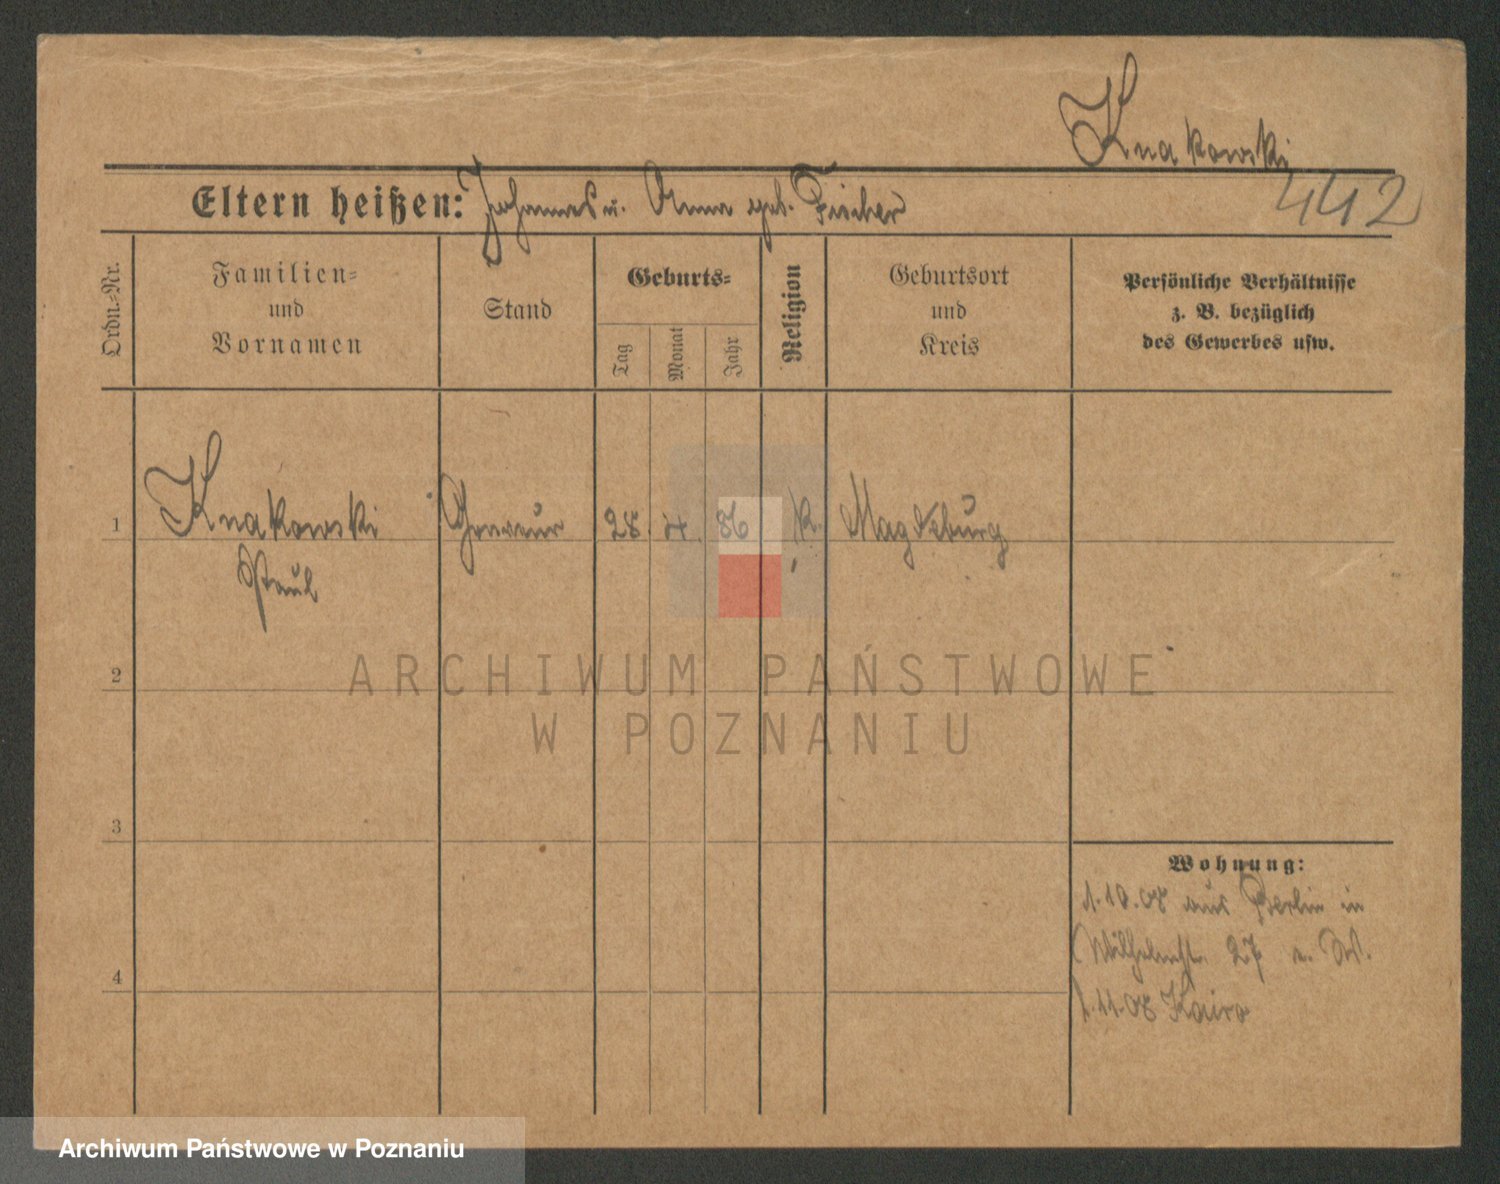 Knakowski
442
Eltern heißen: Johannes u. Anna geb. Fischer
Ordn.-Nr.
Familien-
und
Vornamen
Stand
Geburts-
Tag
Monat
Jahr
Religion
Geburtsort
und
Kreis
Persönliche Verhältnisse
z. B. bezüglich
des Gewerbes usw.
1
Knakowski
Paul
Graveur
28. 4. 86
k.
Magdeburg
2
3
4
Wohnung:
1.10.08 aus Berlin in
27
1.11.08 Kairo
ARCHIWUM PAŃSTWOWE
W POZNANIU
Archiwum Państwowe w Poznaniu